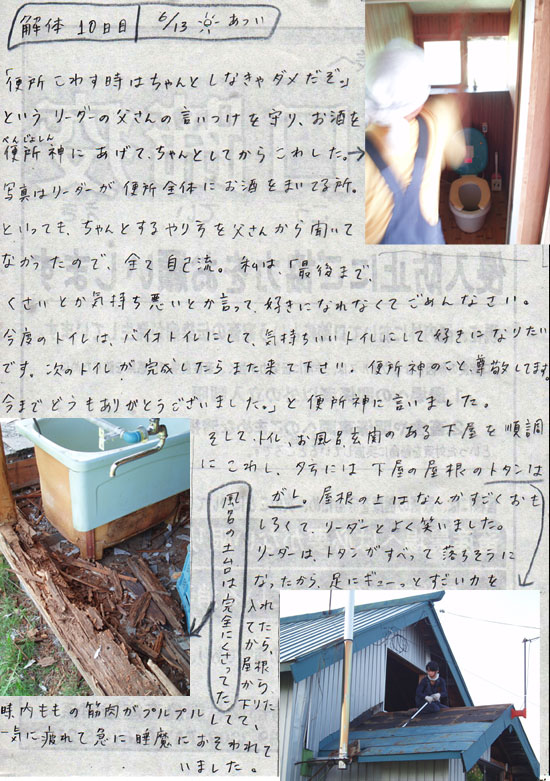 解体 10日目 6/13 あつい
「便所こわす時はちゃんとしなきゃダメだぞ。」
というリーダーの父さんの言いつけを守り、お酒を
べんじょしん
便所神にあげて、ちゃんとしてからこわした。→
写真はリーダーが便所全体にお酒をまいてる所。
といっても、ちゃんとするやり方を父さんから聞いて
なかったので、全て自己流。私は、「最後まで、
くさいとか気持ち悪いとか言って、好きになれなくてごめんなさい。
今度のトイレは、バイオトイレにして、気持ちいいトイレにして好きになりたい
です。次のトイレが完成したらまた来て下さい。便所神のこと、尊敬してます。
今までどうもありがとうございました。」と便所神に言いました。
そして、トイレ、お風呂、玄関のある下屋を順調
にこわし、夕方には下屋の屋根のトタンは
がし。屋根の上はなんかすごくおも
しろくて、リーダーとよく笑いました。
リーダーは、トタンがすべって落ちそうに
なったから、足にギューっとすごい力を
入れてたから、屋根から下りた
時、内ももの筋肉がプルプルして、
一気に疲れて急に睡魔におそわれて
いました。
風呂の土台は完全にくさってた